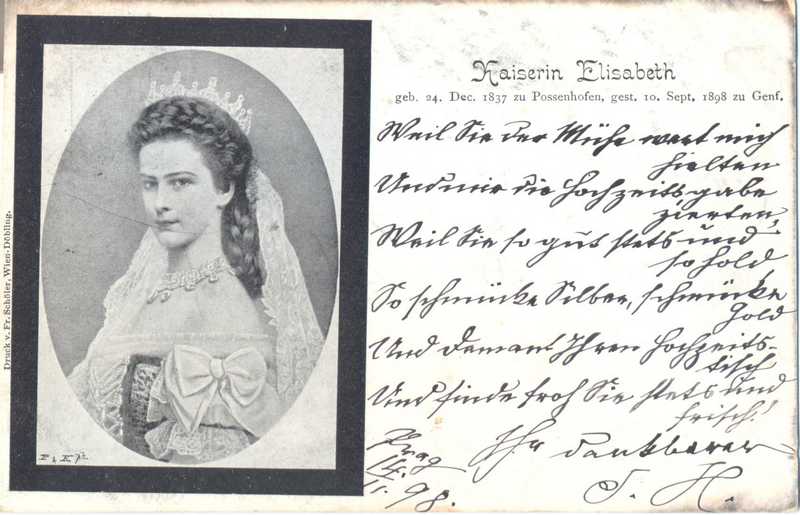 Kaiserin Elisabeth
geb. 24. Dec. 1837 zu Possenhofen, gest. 10. Sept. 1898 zu Genf.
Weil Sie der Mühe wert mich
hielten
Und mir die Hochzeitsgabe
zierten,
Weil Sie so gut stets und
so hold,
So schmücke Silber, schmücke
Gold
Und Demant Ihren Hochzeits-
tisch
Und finde froh Sie stets und
frisch!
Ihr dankbarer
Prag
14.
11. 98.
S. H.
Druck v. Fr. Schöler, Wien-Döbling.